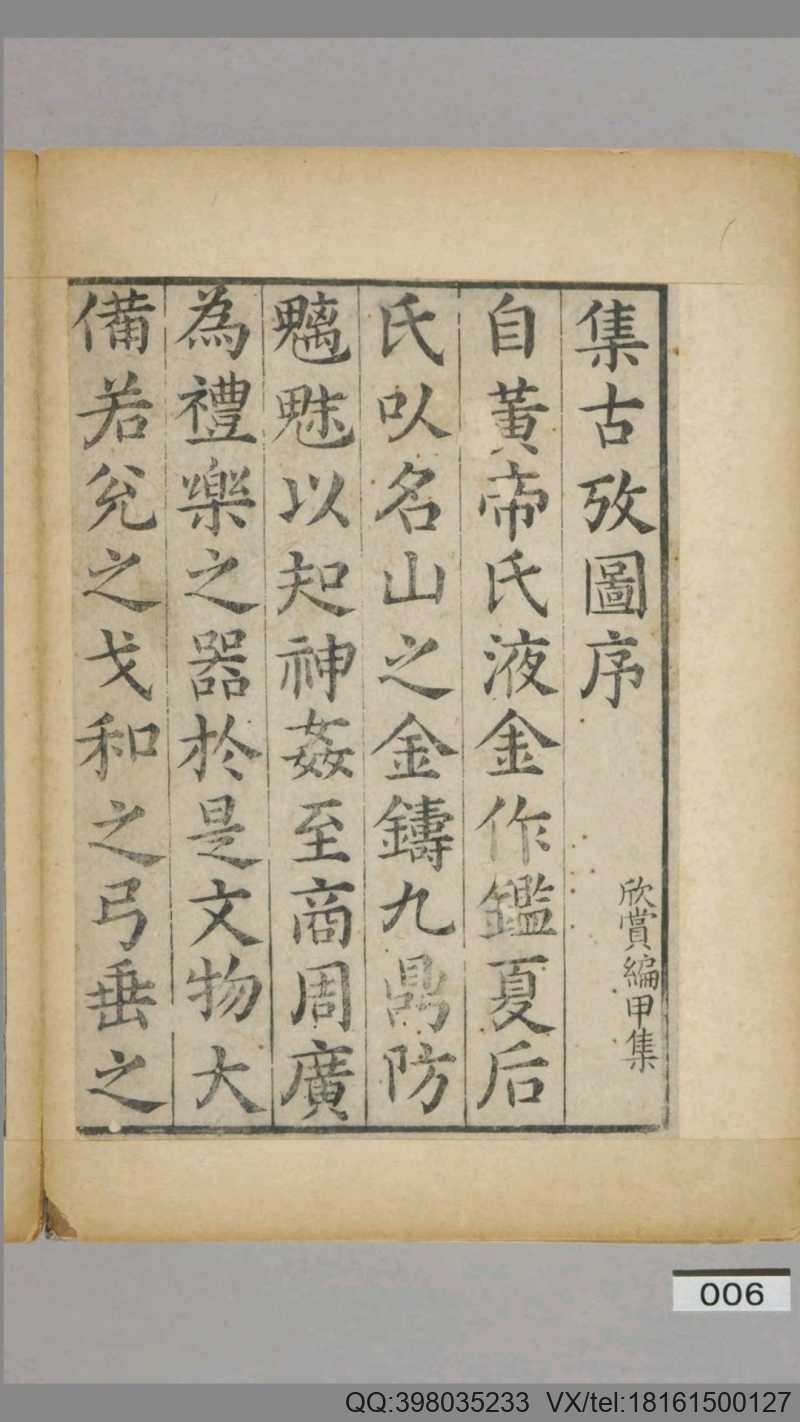 集古攷圖序
欣賞編甲集
自黃帝氏液金作鑑夏后
氏㕥名山之金鑄九鼎防
魑魅以知神姦至商周廣
為禮樂之器於是文物大
備若兊之戈和之弓垂之
006
QQ:398035233 VX/tel:18161500127